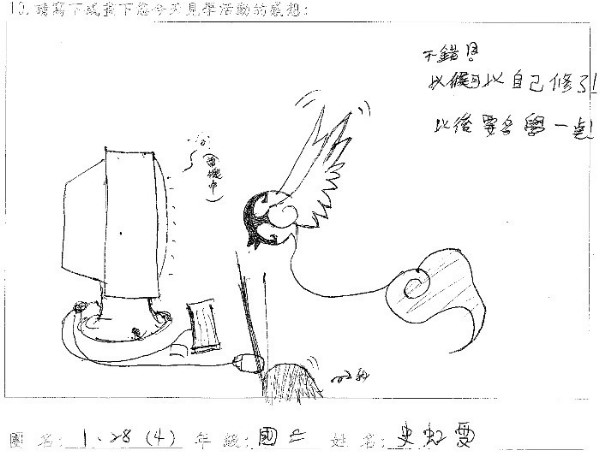 10. 請寫下或載下您今天見學活動的感想:
不錯!
以後可以自己修了!
以後要多學一點!
(當機中)
團名: 1、28 (4) 年級: 國二 姓名: 史虹雯